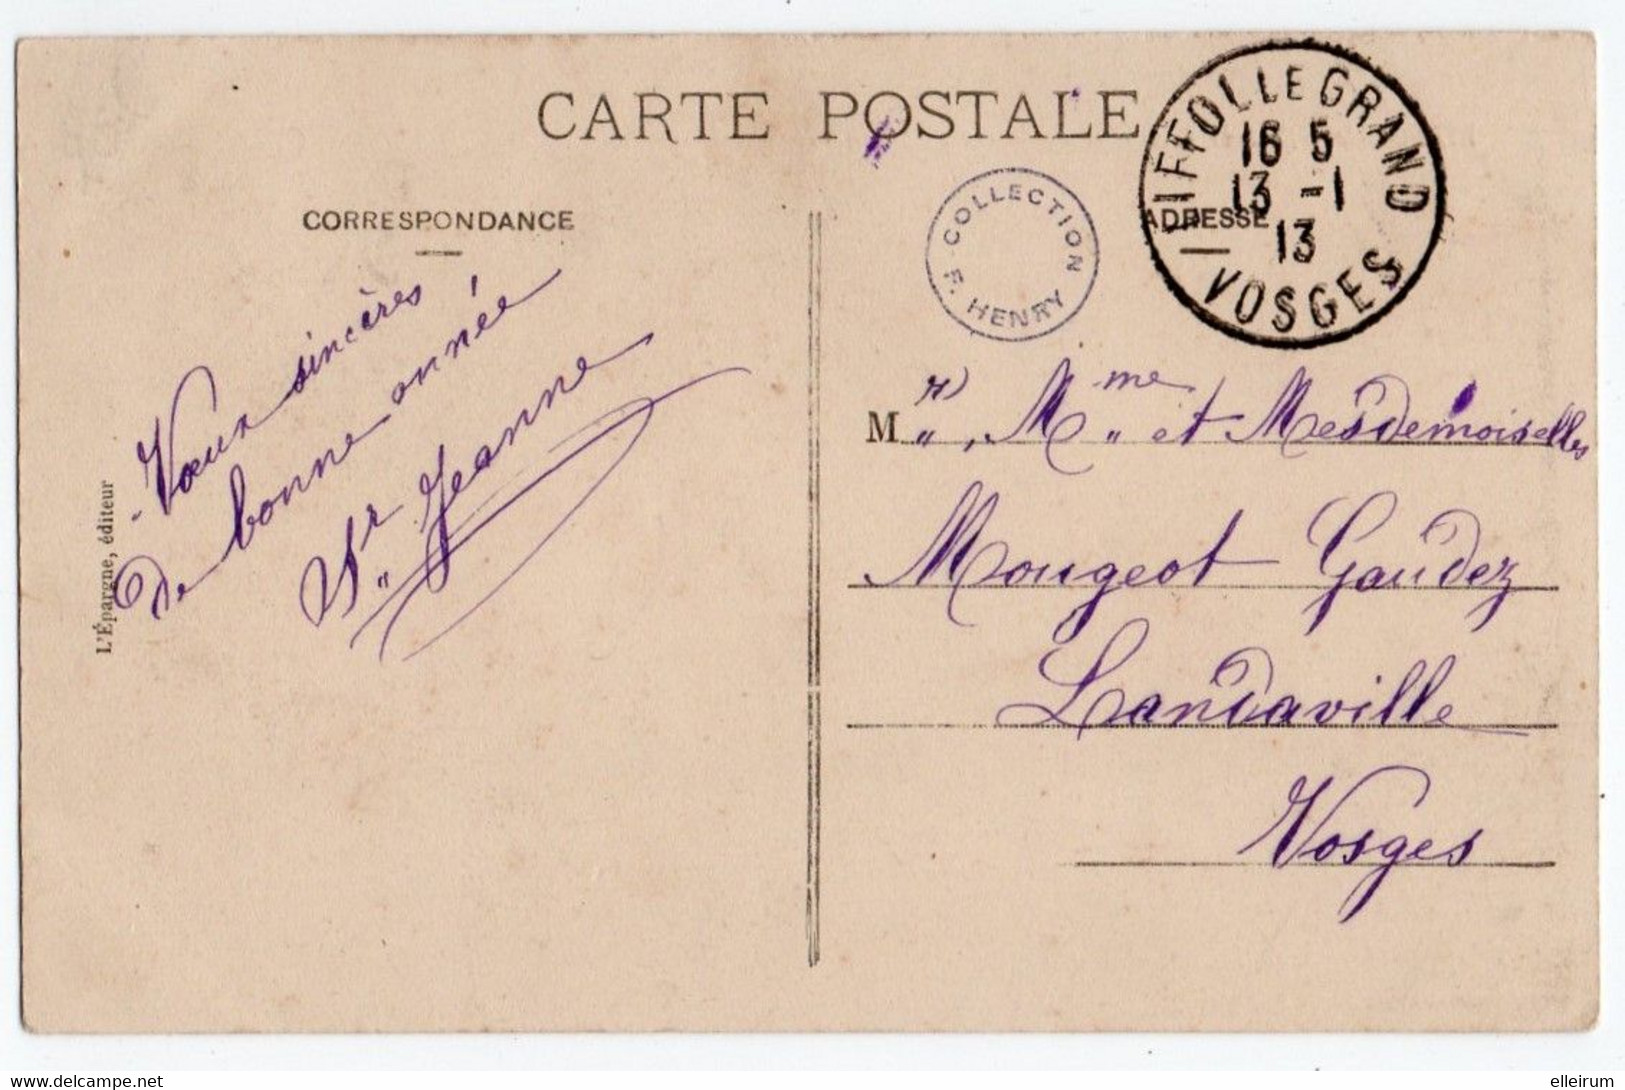 CARTE POSTALE
LIFFOL LE GRAND
16 5
13 -1
13
VOSGES
COLLECTION
F. HENRY
CORRESPONDANCE
ADRESSE
- Vœux sincères
de bonne année
Sr Jeanne
L'Épargne, éditeur
Mr, Mme et Mesdemoiselles
Mougeot Gaudez
Landaville
Vosges
delcampe.net
elleirum